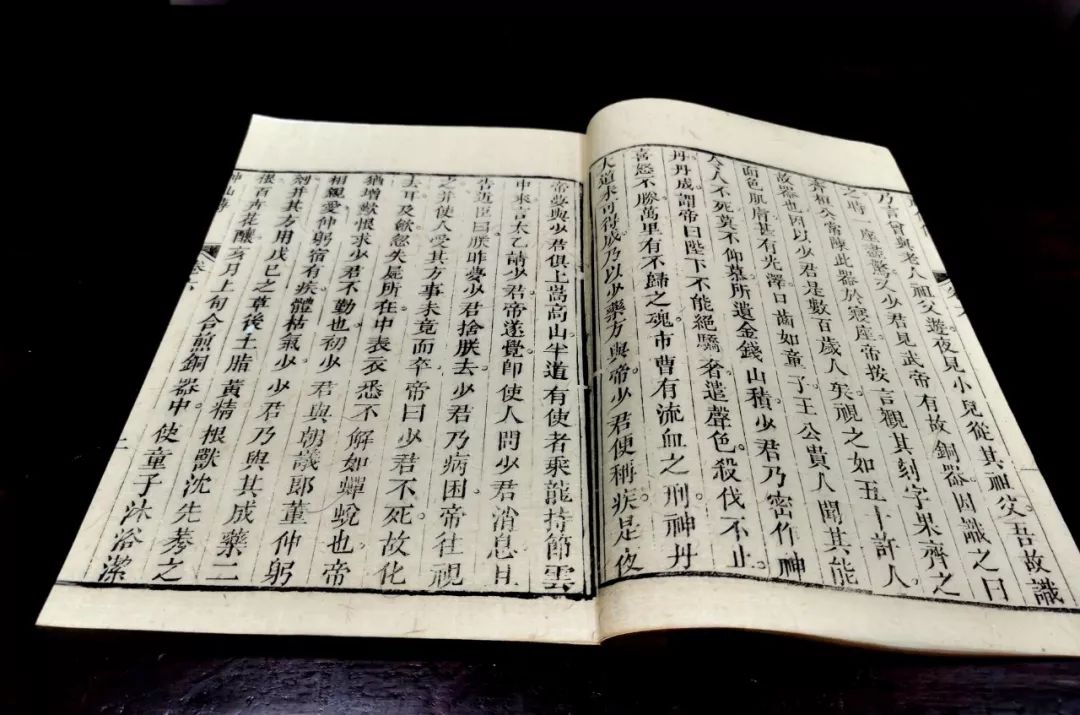 乃言曾與老人祖父遊夜見小兒從其祖父吾故識
之時一座盡驚又少君見武帝有故銅器因識之曰
齊桓公常陳此器於寢座帝按言觀其刻字果齊之
故器也因以少君是數百歲人矣視之如五十許人
面色肌膚甚有光澤口齒如童子王公貴人聞其能
令人不死莫不仰慕所遺金錢山積少君乃密作神
丹丹成謂帝曰陛下不能絕驕奢遣聲色殺伐不止
喜怒不勝萬里有不歸之魂市曹有流血之刑神丹
大道未可得成乃以少藥方與帝少君便稱疾是夜
帝夢與少君俱上嵩高山半道有使者乘龍持節雲
中來言太乙請少君帝遂覺即使人問少君消息且
告近臣曰朕昨夢少君捨朕去少君乃病困帝往視
之并使人受其方事未竟而卒帝曰少君不死故化
去耳及斂忽失屍所在中表衣悉不解如蟬蛻也帝
猶增歎恨求少君不勤也初少君與朝議郎董仲躬
相親愛仲躬宿有疾體枯氣少少君乃與其成藥二
劑并其方用戊巳之草後土脂黃精根獸沈先莠之
根百卉花釀亥月上旬合煎銅器中使童子沐浴潔
神仙傳 卷六 二